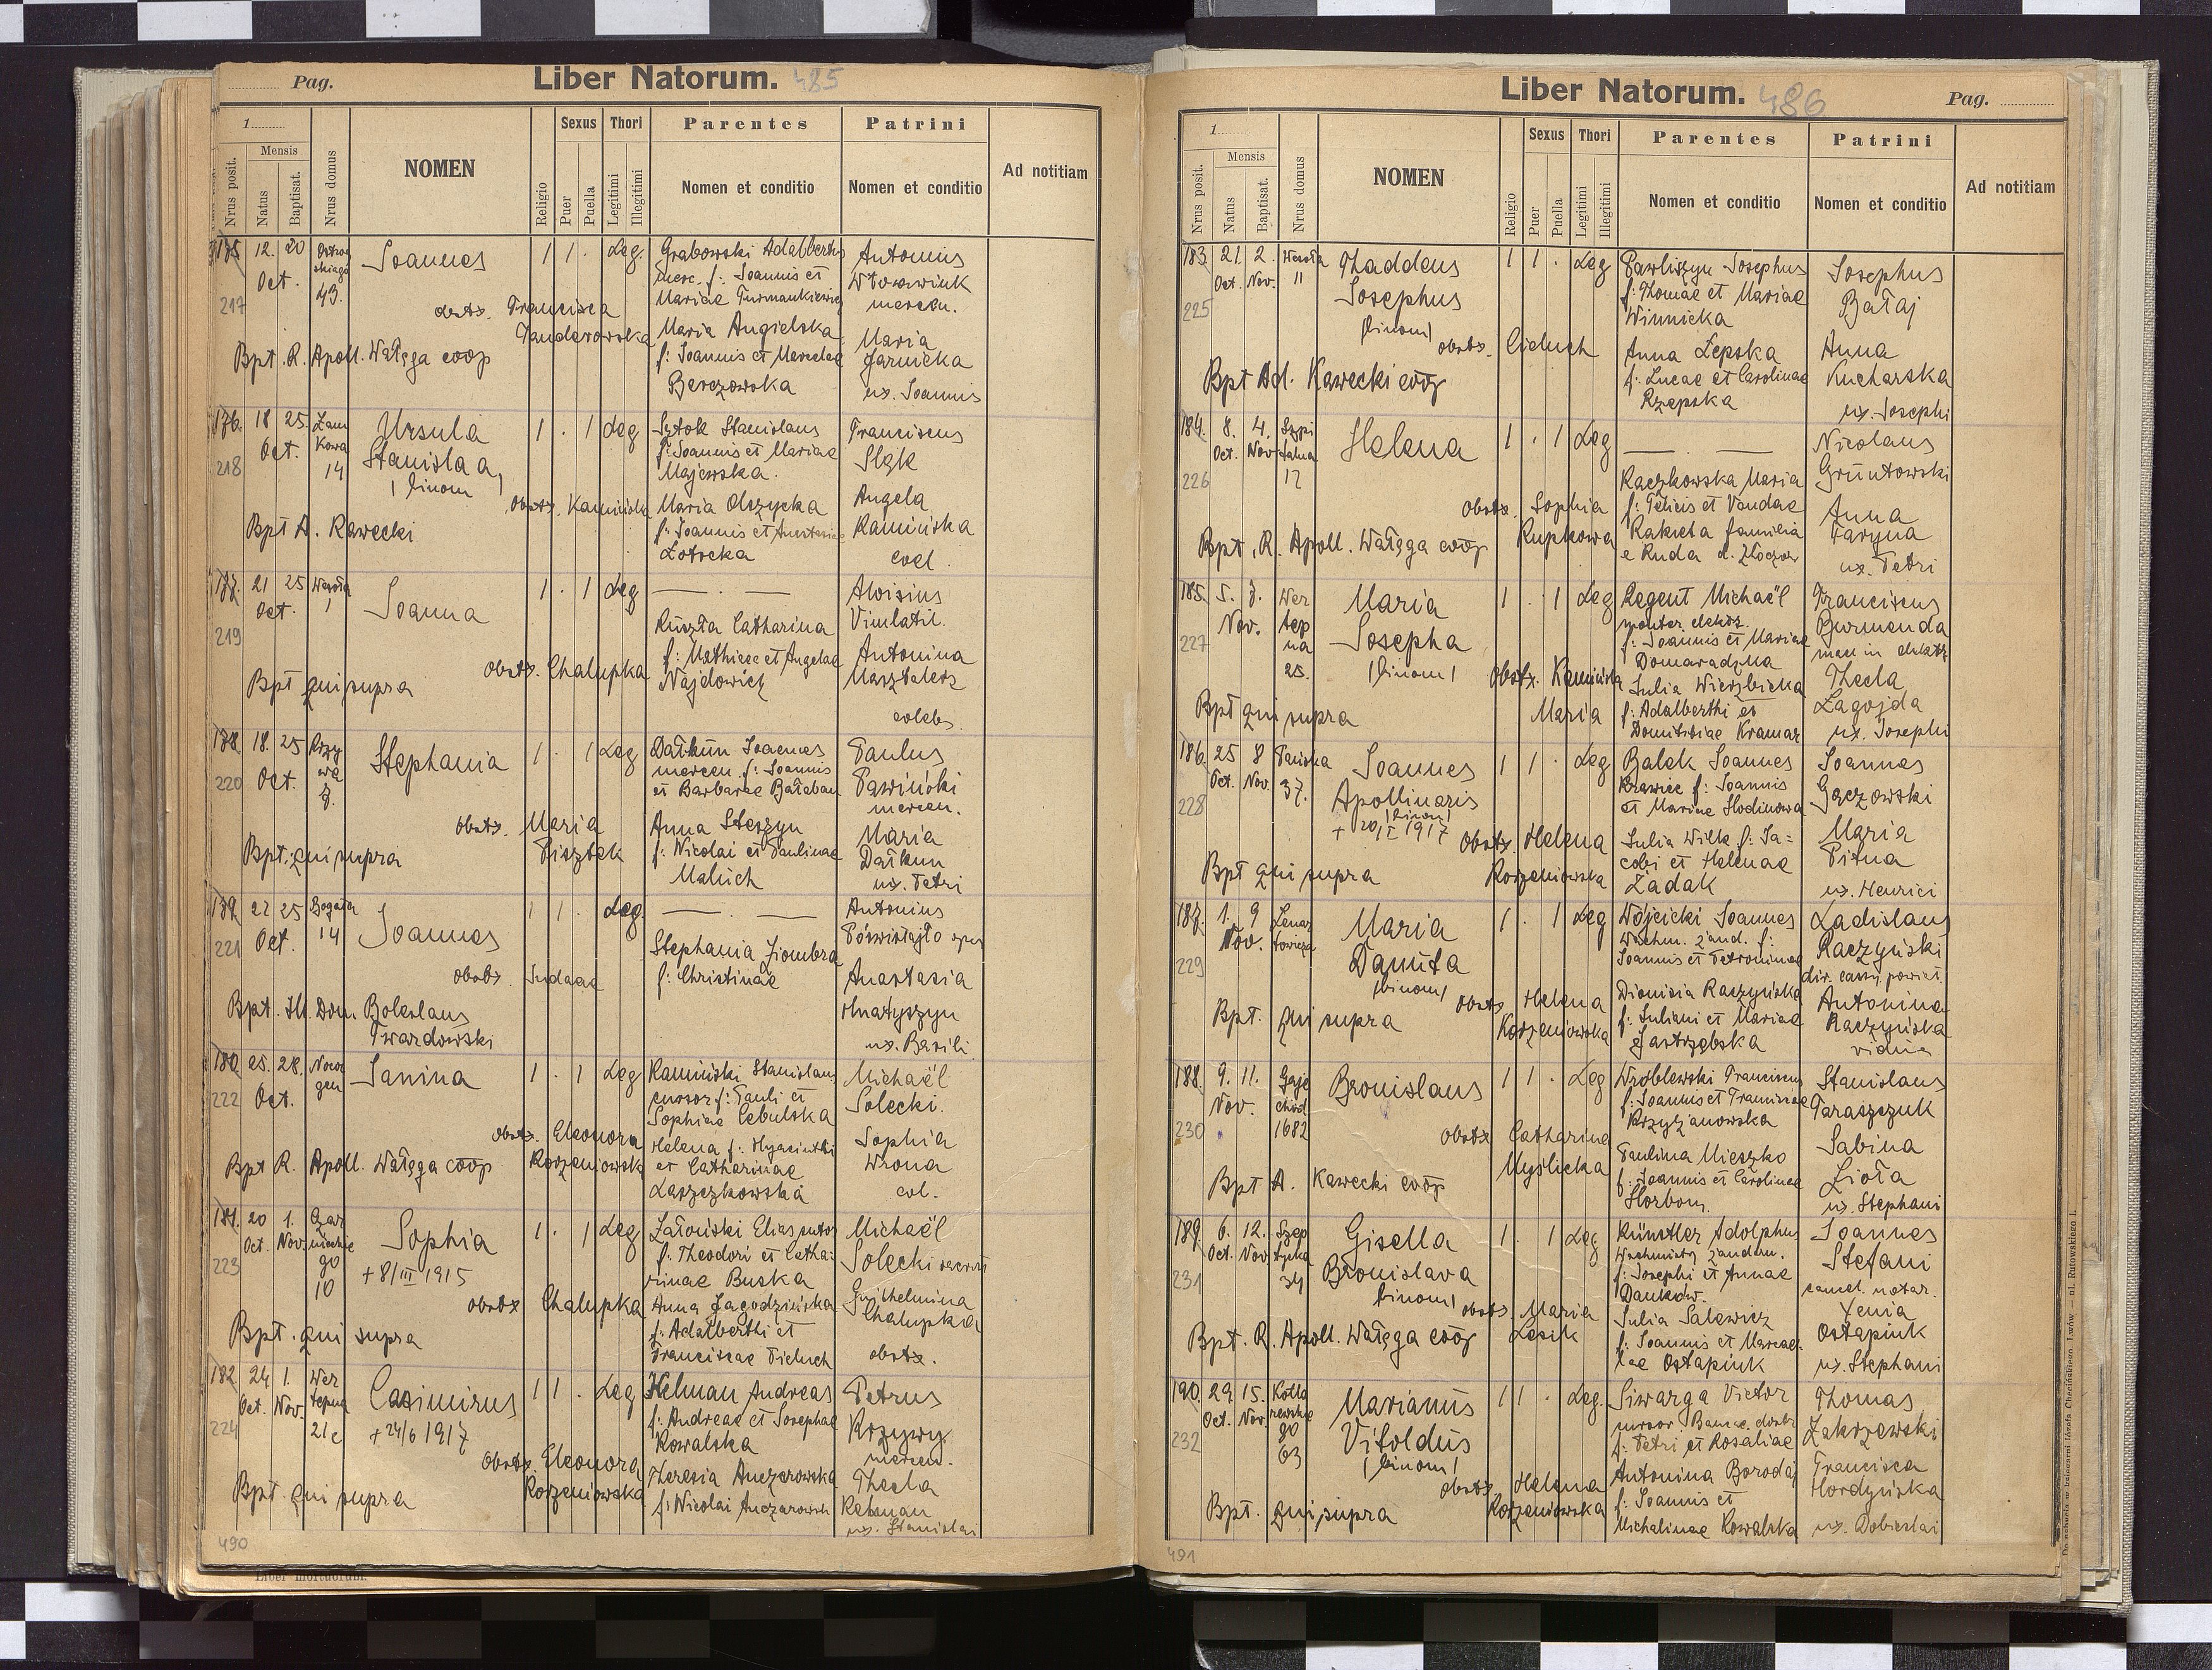 Pag.
Liber Natorum. 485
1
Nrus posit.
Mensis
Natus
Baptisat.
Nrus domus
NOMEN
Religio
Sexus
Puer
Puella
Thori
Legitimi
Illegitimi
Parentes
Nomen et conditio
Patrini
Nomen et conditio
Ad notitiam
175 12. 20 Oct. 43. Joannes 1 1 . Leg.
217
Grabowski Adalbertus
merc. f: Joannis et
Mariae Turmankiewicz
Maria Angielska
f: Joannis et Marcelae
Berezowska
Antonius
Wtorowiuk
mercen.
Maria
Jarnicka
ux. Joannis
obstx. Francisca
Bpt. R. Apoll. Wałęga coop
176. 18 25. Oct. Zam
kowa
14 Ursula
Stanislaa
(binom) 1 . 1 Leg
218
Sztok Stanislaus
f: Joannis et Mariae
Majewska.
Maria Olszycka
f: Joannis et Anastasiae
Franciscus
Angela
Kamińska
coel
obstx. Kamińska
Bpt A. Kawecki
177. 21 25 Oct. Wesoła
1 Joanna 1 . 1 Leg
219
Kuszta Catharina
f: Mathiae et Angelae
Najdowicz
Aloisius
Antonina
Masztalerz
coelebs.
obstx. Chalupka
Bpt qui supra
178. 18. 25 Oct. 8. Stephania 1 . 1 Leg
220
Datkun Joannes
mercen. f: Joannis
et Barbarae Bałaban
Anna Steszyn
f: Nicolai et Paulinae
Malich
Paulus
Pawiński
mercen.
Maria
Datkun
ux. Petri
obstx. Maria
Pisztek
Bpt. qui supra
179. 22 25 Oct. Bogata
14 Joannes 1 1 . Leg.
221
Stephania Ziombra
f: Christinae
Antonius
Anastasia
Hnatyszyn
ux. Basili
obstx. Judaea
Bpt. Il. Dom Boleslaus
Twardowski
180. 25. 28. Oct. Janina 1 . 1 Leg
222
Kamiński Stanislaus
cursor f: Pauli et
Sophiae Cebulska
Helena f: Hyacinthi
et Catharinae
Laszczkowska
Michaël
Solecki.
Sophia
Wrona
coel.
obstx. Eleonora
Korzeniowska
Bpt R. Apoll. Wałęga coop
181. 20 1. Oct. Nov. 10 Sophia
+ 8/III 1915 1 . 1 Leg
223
Załoński Elias sutor
f: Theodori et Catha-
rinae Buska
Anna Jagodzińska
f: Adalberthi et
Franciscae Pieluch
Michaël
Solecki
Guilhelmina
Chalupka
obstx.
obstx Chalupka
Bpt. qui supra
182. 24 1. Oct. Nov. Wer
tepna
21c Casimirus
+ 24/6 1917 1 1 . Leg
224
Helman Andreas
f: Andreae et Josephae
Kowalska
Theresia Anczarowska
f: Nicolai Anczarowski
Petrus
Krzywy
mercen.
Thecla
Rehman
ux. Stanislai
obstx. Eleonora
Korzeniowska
Bpt. qui supra
490
Liber mortuorum.
Liber Natorum. 486
Pag.
1
Nrus posit.
Mensis
Natus
Baptisat.
Nrus domus
NOMEN
Religio
Sexus
Puer
Puella
Thori
Legitimi
Illegitimi
Parentes
Nomen et conditio
Patrini
Nomen et conditio
Ad notitiam
183. 21. 2. Oct. Nov. Wesoła
11 Thaddeus
Josephus
(binom) 1 1 . Leg
225
Pawliszyn Josephus
f: Thomae et Mariae
Winnicka
Anna Lepska
f: Lucae et Carolinae
Rzepska
Josephus
Bałaj
Anna
Kucharska
ux. Josephi
obstx. Cieluch
Bpt Ad. Kawecki coop
184. 8. 4. Oct. Nov. Szpi
talna
17 Helena 1 . 1 Leg
226
Kaczkowska Maria
f: Felicis et Vandae
Rakieta familia
e Ruda d. Złoczow
Nicolaus
Gruntowski
Anna
Faryna
ux. Petri
obstx. Sophia
Rupkowa
Bpt. R. Apoll. Wałęga coop
185. 5. 8. Nov. Wer
tep
na
25. Maria
Josepha
(binom) 1 . 1 Leg
227
Regent Michaël
monter elektr.
f: Joannis et Mariae
Domaradzna
Julia Wierzbicka
f: Adalberthi et
Domitisiae Kramar
Franciscus
Burmenda
Thecla
Lagojda
ux. Josephi
obstx. Kamińska
Maria
Bpt qui supra
186. 25 8 Oct. Nov. Pańska
37. Joannes
Apollinaris
(binom)
+ 20/I 1917 1 1 . Leg
228
Balek Joannes
Krawiec f: Joannis
et Mariae Hodinowa
Julia Wilk f: Ja-
cobi et Helenae
Zadak
Joannes
Gączowski
Maria
Pitna
ux. Henrici
obstx. Helena
Korzeniowska
Bpt qui supra
187. 1. 9 Nov. Lenar
towicza Maria
Danuta
(binom) 1 . 1 Leg
229
Wójcicki Joannes
Wachm. żand. f:
Joannis et Petroninae
Dionisia Raczyńska
f: Juliani et Mariae
Jastrzębska
Ladislaus
Raczyński
dir. cassy powiat.
Antonina
Raczyńska
vidua
obstx Helena
Korzeniowska
Bpt. qui supra
188. 9. 11. Nov. 1682 Bronislaus 1 1 . Leg
230
Wróblewski Franciscus
f: Joannis et Franciscae
Krzyżanowska
Paulina Mieszko
f: Joannis et Carolinae
Horbow.
Stanislaus
Taraszczuk
Sabina
Zioła
ux. Stephani
obstx Catharina
Myślicka
Bpt A. Kawecki coop
189. 6. 12. Oct. Nov. Szep
tycka
34 Gisella
Bronislava
binom) 1 . 1 Leg
231
Künstler Adolphus
Wachmistrz żandm.
f: Josephi et Annae
Dankow.
Julia Salewicz
f: Joannis et Marcel-
lae Ostapiuk
Joannes
Stefani
cancel. notar.
Xenia
Ostapiuk
ux. Stephani
obstx Maria
Lesik
Bpt. R. Apoll. Wałęga coop
190. 29. 15. Oct. Nov. Kotla
rewskie
go
63 Marianus
Vitoldus
(binom) 1 1 . Leg.
232
Siwarga Victor
f: Petri et Rosaliae
Antonina Borodaj
f: Joannis et
Michalinae Kowalska
Thomas
Zakrzewski
Francisca
Hordyńska
obstx. Helena
Korzeniowska
Bpt. qui supra
491